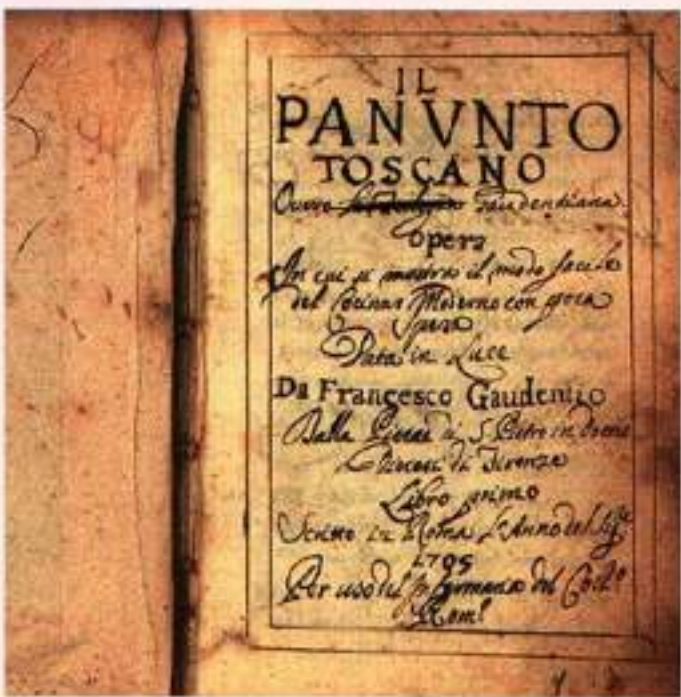 IL
PANVNTO
TOSCANO
Overo Gaudentiana
Opera
In cui si mostra il modo facile
del Cucinar Moderno con poca
spesa
Data in Luce
Da Francesco Gaudentio
Dalla di S. Pietro in
Diocesi di Firenze
Libro primo
Scritto in Roma L'Anno del Sig.re
1705
Per uso del del Coll.o
Rom.o